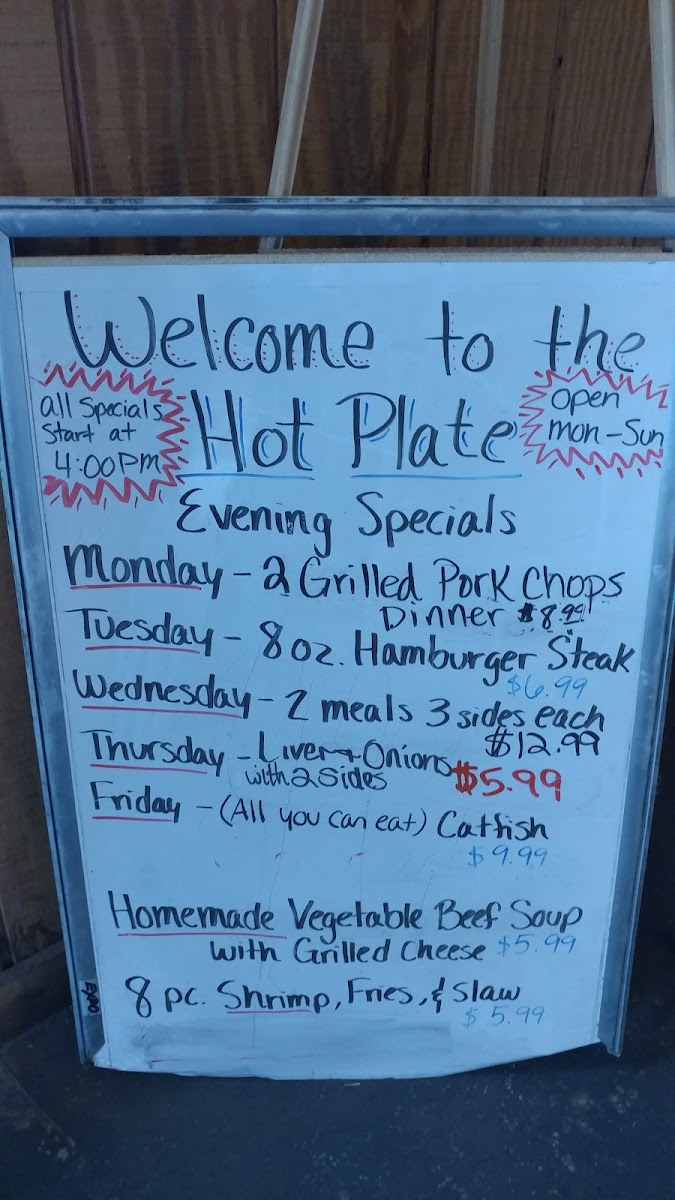 Welcome to the
all Specials
Start at
4:00PM
Hot Plate
open
mon-Sun
Evening Specials
Monday - 2 Grilled Pork Chops
Dinner $8.99
Tuesday - 8 oz. Hamburger Steak
$6.99
Wednesday - 2 meals 3 sides each
$12.99
Thursday - Liver + Onions
with 2 sides $5.99
Friday - (All you can eat) Catfish
$9.99
Homemade Vegetable Beef Soup
with Grilled Cheese $5.99
8 pc. Shrimp, Fries, & Slaw
$5.99
EXPO